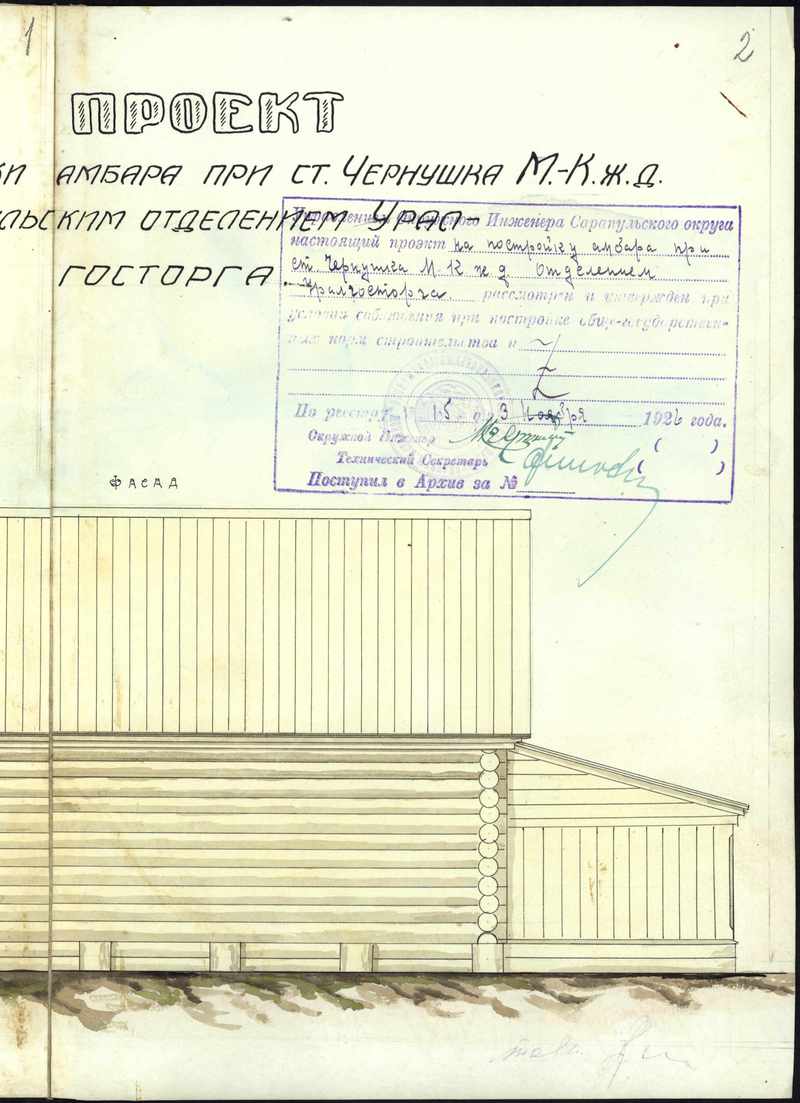 1
2
ПРОЕКТ
КИ АМБАРА ПРИ СТ. ЧЕРНУШКА М.-К.Ж.Д.
УЛЬСКИМ ОТДЕЛЕНИЕМ УРАЛ-
ГОСТОРГА
Управлением Окружного Инженера Сарапульского округа
настоящий проэкт на постройку амбара при
ст. Чернушка М. К ж. д. Отделением
Уралгосторга. рассмотрен и утвержден при
условии соблюдения при постройке обще-государствен-
ных норм строительства и
По реестру 15 3 Ноября 1926 года.
Окружной Инженер
Технический Секретарь
Поступил в Архив за №
ФАСАД